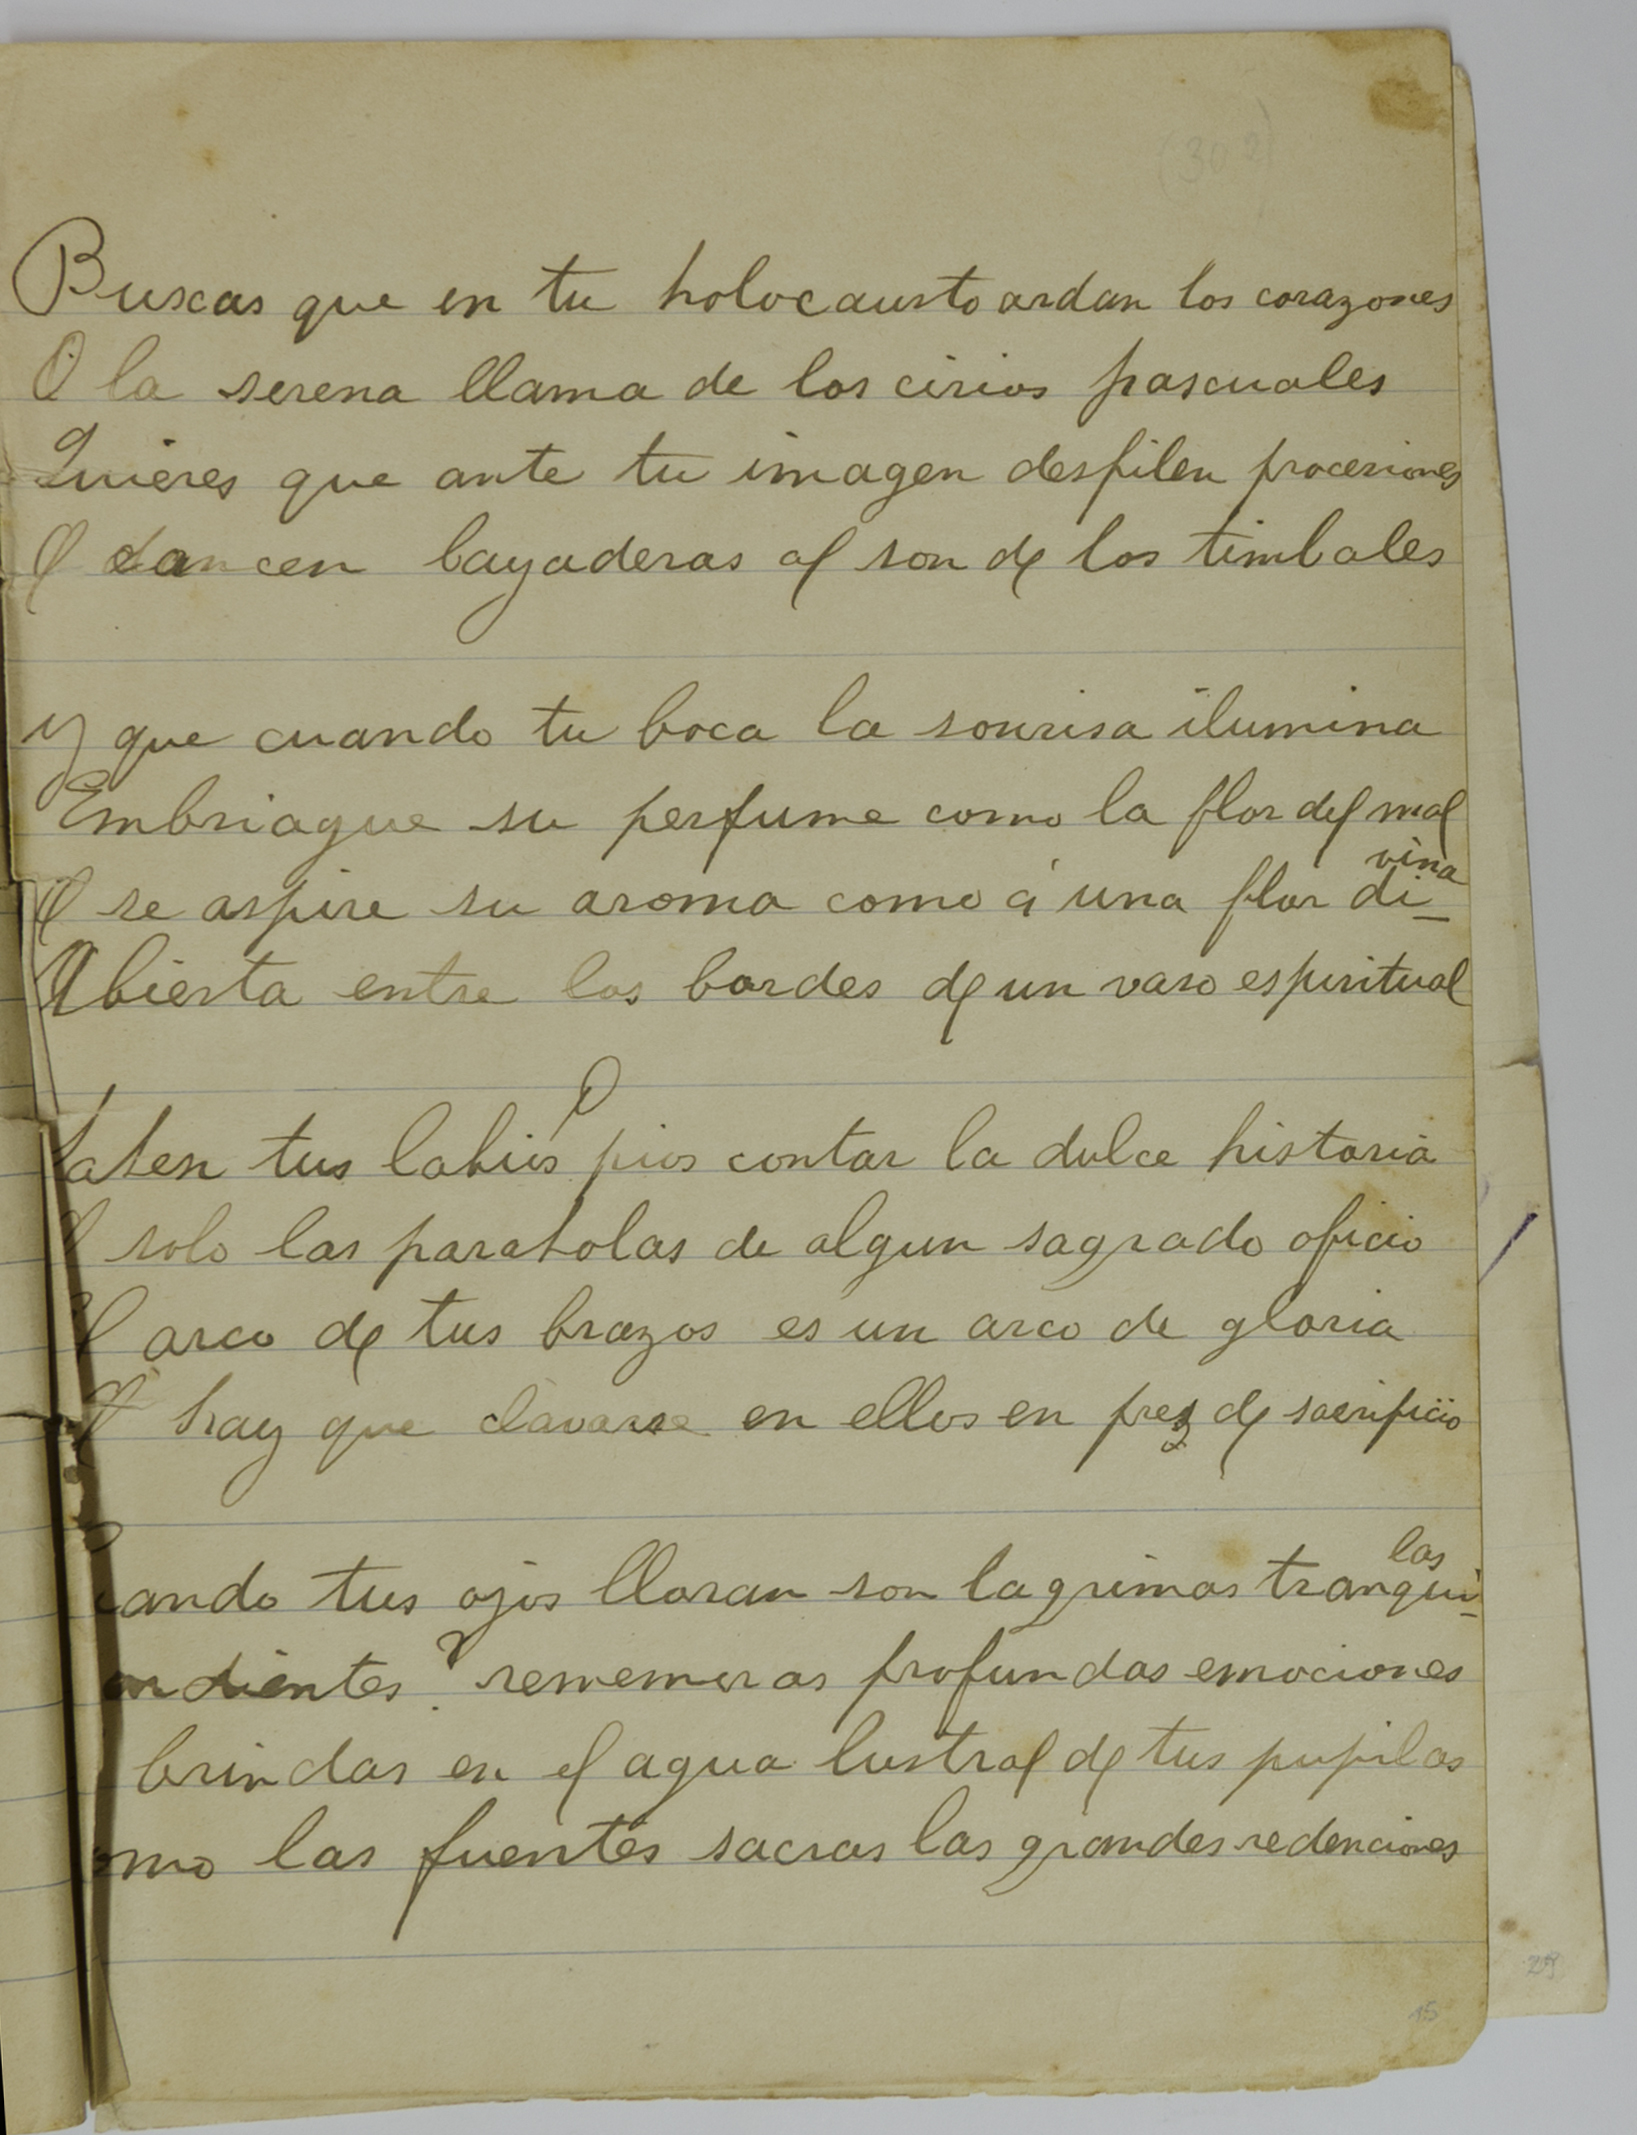 (302)
Buscas que en tu holocausto ardan los corazones
O la serena llama de los cirios pascuales
Quieres que ante tu imagen desfilen procesiones
O dancen bayaderas al son de los timbales
y que cuando tu boca la sonrisa ilumina
Embriague su perfume como la flor del mal
O se aspire su aroma como á una flor di-vina
Abierta entre los bordes de un vaso espiritual
Saben tus labios O pios contar la dulce historia
solo las parabolas de algun sagrado oficio
arco de tus brazos es un arco de gloria
hay que clavarse en ellos en prez de sacrificio
ando tus ojos lloran son lagrimas tranqui-las
ardientes? rememoras profundas emociones
brindas en el agua lustral de tus pupilas
omo las fuentes sacras las grandes redenciones
29
15